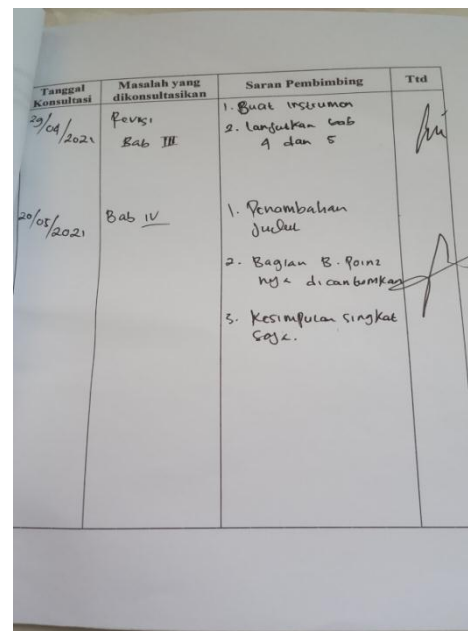 Tanggal Konsultasi
Masalah yang dikonsultasikan
Saran Pembimbing
Ttd
29/04/2021
Revisi
Bab III
1. Buat Instrumen
2. Lanjutkan bab
4 dan 5
20/05/2021
Bab IV
1. Penambahan
Judul
2. Bagian B. Poin2
nya dicantumkan
3. Kesimpulan singkat
saja.